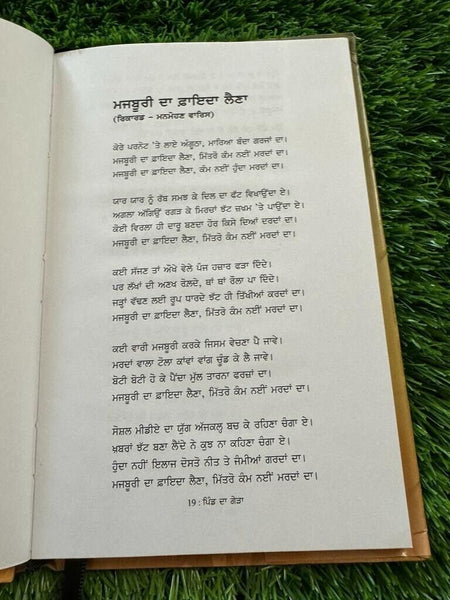 ਮਜਬੂਰੀ ਦਾ ਫ਼ਾਇਦਾ ਲੈਣਾ
(ਰਿਕਾਰਡ - ਮਨਮੋਹਣ ਵਾਰਿਸ)
ਕੋਰੇ ਪਰਨੋਟ 'ਤੇ ਲਾਏ ਅੰਗੂਠਾ, ਮਾਰਿਆ ਬੰਦਾ ਗਰਜਾਂ ਦਾ।
ਮਜਬੂਰੀ ਦਾ ਫ਼ਾਇਦਾ ਲੈਣਾ, ਮਿੱਤਰੋ ਕੰਮ ਨਈਂ ਮਰਦਾਂ ਦਾ।
ਮਜਬੂਰੀ ਦਾ ਫ਼ਾਇਦਾ ਲੈਣਾ, ਕੰਮ ਨਈਂ ਹੁੰਦਾ ਮਰਦਾਂ ਦਾ।
ਯਾਰ ਯਾਰ ਨੂੰ ਰੱਬ ਸਮਝ ਕੇ ਦਿਲ ਦਾ ਫੱਟ ਵਿਖਾਉਂਦਾ ਏ।
ਅਗਲਾ ਅੱਗਿਉਂ ਰਗੜ ਕੇ ਮਿਰਚਾਂ ਝੱਟ ਜ਼ਖ਼ਮ 'ਤੇ ਪਾਉਂਦਾ ਏ।
ਕੋਈ ਵਿਰਲਾ ਹੀ ਦਾਰੂ ਬਣਦਾ ਹੋਰ ਕਿਸੇ ਦਿਆਂ ਦਰਦਾਂ ਦਾ।
ਮਜਬੂਰੀ ਦਾ ਫ਼ਾਇਦਾ ਲੈਣਾ, ਮਿੱਤਰੋ ਕੰਮ ਨਈਂ ਮਰਦਾਂ ਦਾ।
ਕਈ ਸੱਜਣ ਤਾਂ ਔਖੇ ਵੇਲੇ ਪੰਜ ਹਜ਼ਾਰ ਫੜਾ ਦਿੰਦੇ।
ਪਰ ਲੱਖਾਂ ਦੀ ਅਣਖ ਰੋਲਦੇ, ਥਾਂ ਥਾਂ ਰੌਲਾ ਪਾ ਦਿੰਦੇ।
ਜੜ੍ਹਾਂ ਵੱਢਣ ਲਈ ਰੂਪ ਧਾਰਦੇ ਝੱਟ ਹੀ ਤਿੱਖੀਆਂ ਕਰਦਾਂ ਦਾ।
ਮਜਬੂਰੀ ਦਾ ਫ਼ਾਇਦਾ ਲੈਣਾ, ਮਿੱਤਰੋ ਕੰਮ ਨਈਂ ਮਰਦਾਂ ਦਾ।
ਕਈ ਵਾਰੀ ਮਜਬੂਰੀ ਕਰਕੇ ਜਿਸਮ ਵੇਚਣਾ ਪੈ ਜਾਵੇ।
ਮਰਦਾਂ ਵਾਲਾ ਟੋਲਾ ਕਾਂਵਾਂ ਵਾਂਗ ਚੂੰਡ ਕੇ ਲੈ ਜਾਵੇ।
ਬੋਟੀ ਬੋਟੀ ਹੋ ਕੇ ਪੈਂਦਾ ਮੁੱਲ ਤਾਰਨਾ ਫਰਜ਼ਾਂ ਦਾ।
ਮਜਬੂਰੀ ਦਾ ਫ਼ਾਇਦਾ ਲੈਣਾ, ਮਿੱਤਰੋ ਕੰਮ ਨਈਂ ਮਰਦਾਂ ਦਾ।
ਸੋਸ਼ਲ ਮੀਡੀਏ ਦਾ ਯੁੱਗ ਅੱਜਕਲ੍ਹ ਬਚ ਕੇ ਰਹਿਣਾ ਚੰਗਾ ਏ।
ਖਬਰਾਂ ਝੱਟ ਬਣਾ ਲੈਂਦੇ ਨੇ ਕੁਝ ਨਾ ਕਹਿਣਾ ਚੰਗਾ ਏ।
ਹੁੰਦਾ ਨਹੀਂ ਇਲਾਜ ਦੋਸਤੋ ਨੀਤ ਤੇ ਜੰਮੀਆਂ ਗਰਦਾਂ ਦਾ।
ਮਜਬੂਰੀ ਦਾ ਫ਼ਾਇਦਾ ਲੈਣਾ, ਮਿੱਤਰੋ ਕੰਮ ਨਈਂ ਮਰਦਾਂ ਦਾ।
19 : ਪਿੰਡ ਦਾ ਗੇੜਾ